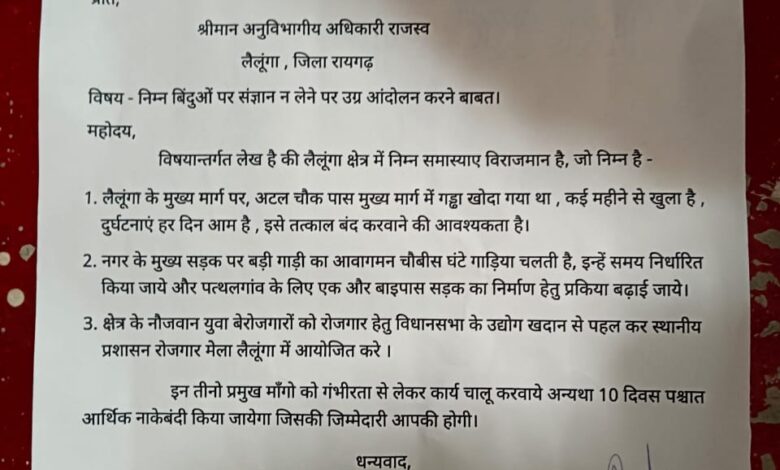 प्रति,
श्रीमान अनुविभागीय अधिकारी राजस्व
लैलूंगा , जिला रायगढ़
विषय - निम्न बिंदुओं पर संज्ञान न लेने पर उग्र आंदोलन करने बाबत।
महोदय,
विषयान्तर्गत लेख है की लैलूंगा क्षेत्र में निम्न समास्याए विराजमान है, जो निम्न है -
1. लैलूंगा के मुख्य मार्ग पर, अटल चौक पास मुख्य मार्ग में गड्ढा खोदा गया था , कई महीने से खुला है ,
दुर्घटनाएं हर दिन आम है , इसे तत्काल बंद करवाने की आवश्यकता है।
2. नगर के मुख्य सड़क पर बड़ी गाड़ी का आवागमन चौबीस घंटे गाड़िया चलती है, इन्हें समय निर्धारित
किया जाये और पत्थलगांव के लिए एक और बाइपास सड़क का निर्माण हेतु प्रकिया बढ़ाई जाये।
3. क्षेत्र के नौजवान युवा बेरोजगारों को रोजगार हेतु विधानसभा के उद्योग खदान से पहल कर स्थानीय
प्रशासन रोजगार मेला लैलूंगा में आयोजित करे ।
इन तीनो प्रमुख माँगो को गंभीरता से लेकर कार्य चालू करवाये अन्यथा 10 दिवस पश्चात
आर्थिक नाकेबंदी किया जायेगा जिसकी जिम्मेदारी आपकी होगी।
धन्यवाद,